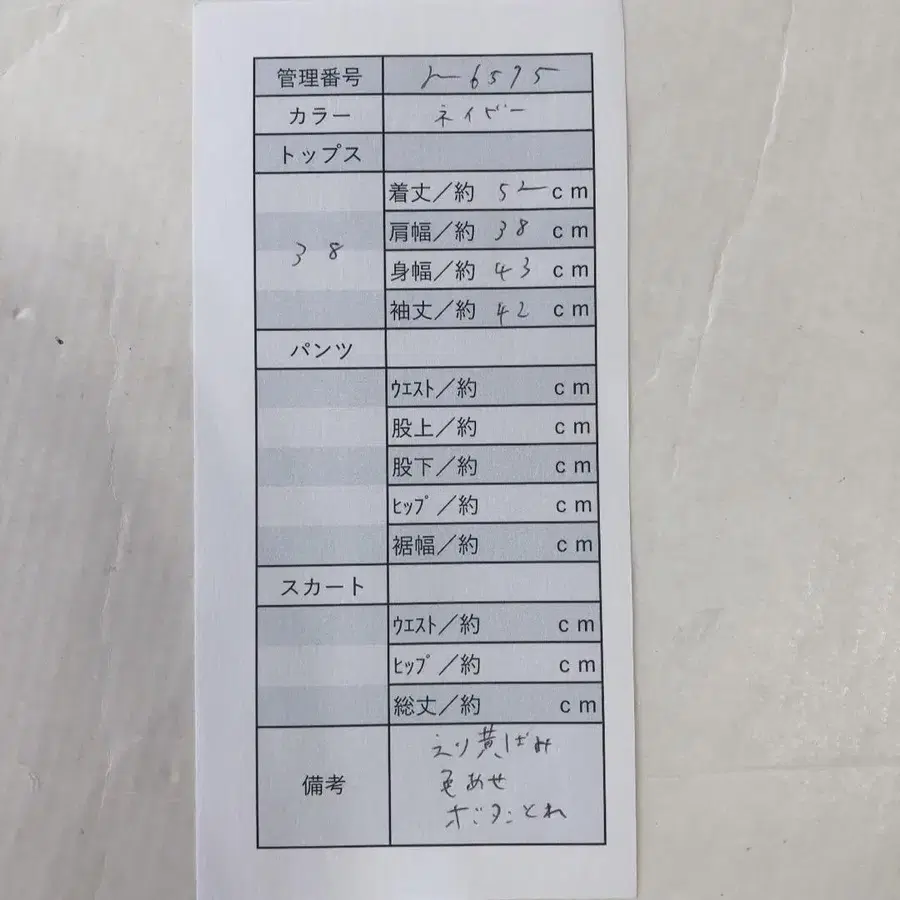 管理番号
カラー ネイビー
トップス
38
着丈/約 52 cm
肩幅/約 38 cm
身幅/約 43 cm
袖丈/約 42 cm
パンツ
ｳｴｽﾄ/約 cm
股上/約 cm
股下/約 cm
ﾋｯﾌﾟ/約 cm
裾幅/約 cm
スカート
ｳｴｽﾄ/約 cm
ﾋｯﾌﾟ/約 cm
総丈/約 cm
備考
えり黄ばみ
色あせ
ボタンとれ